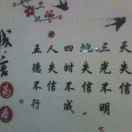 天失信
三光不明
地失信
四时不成
人失信
五德不行